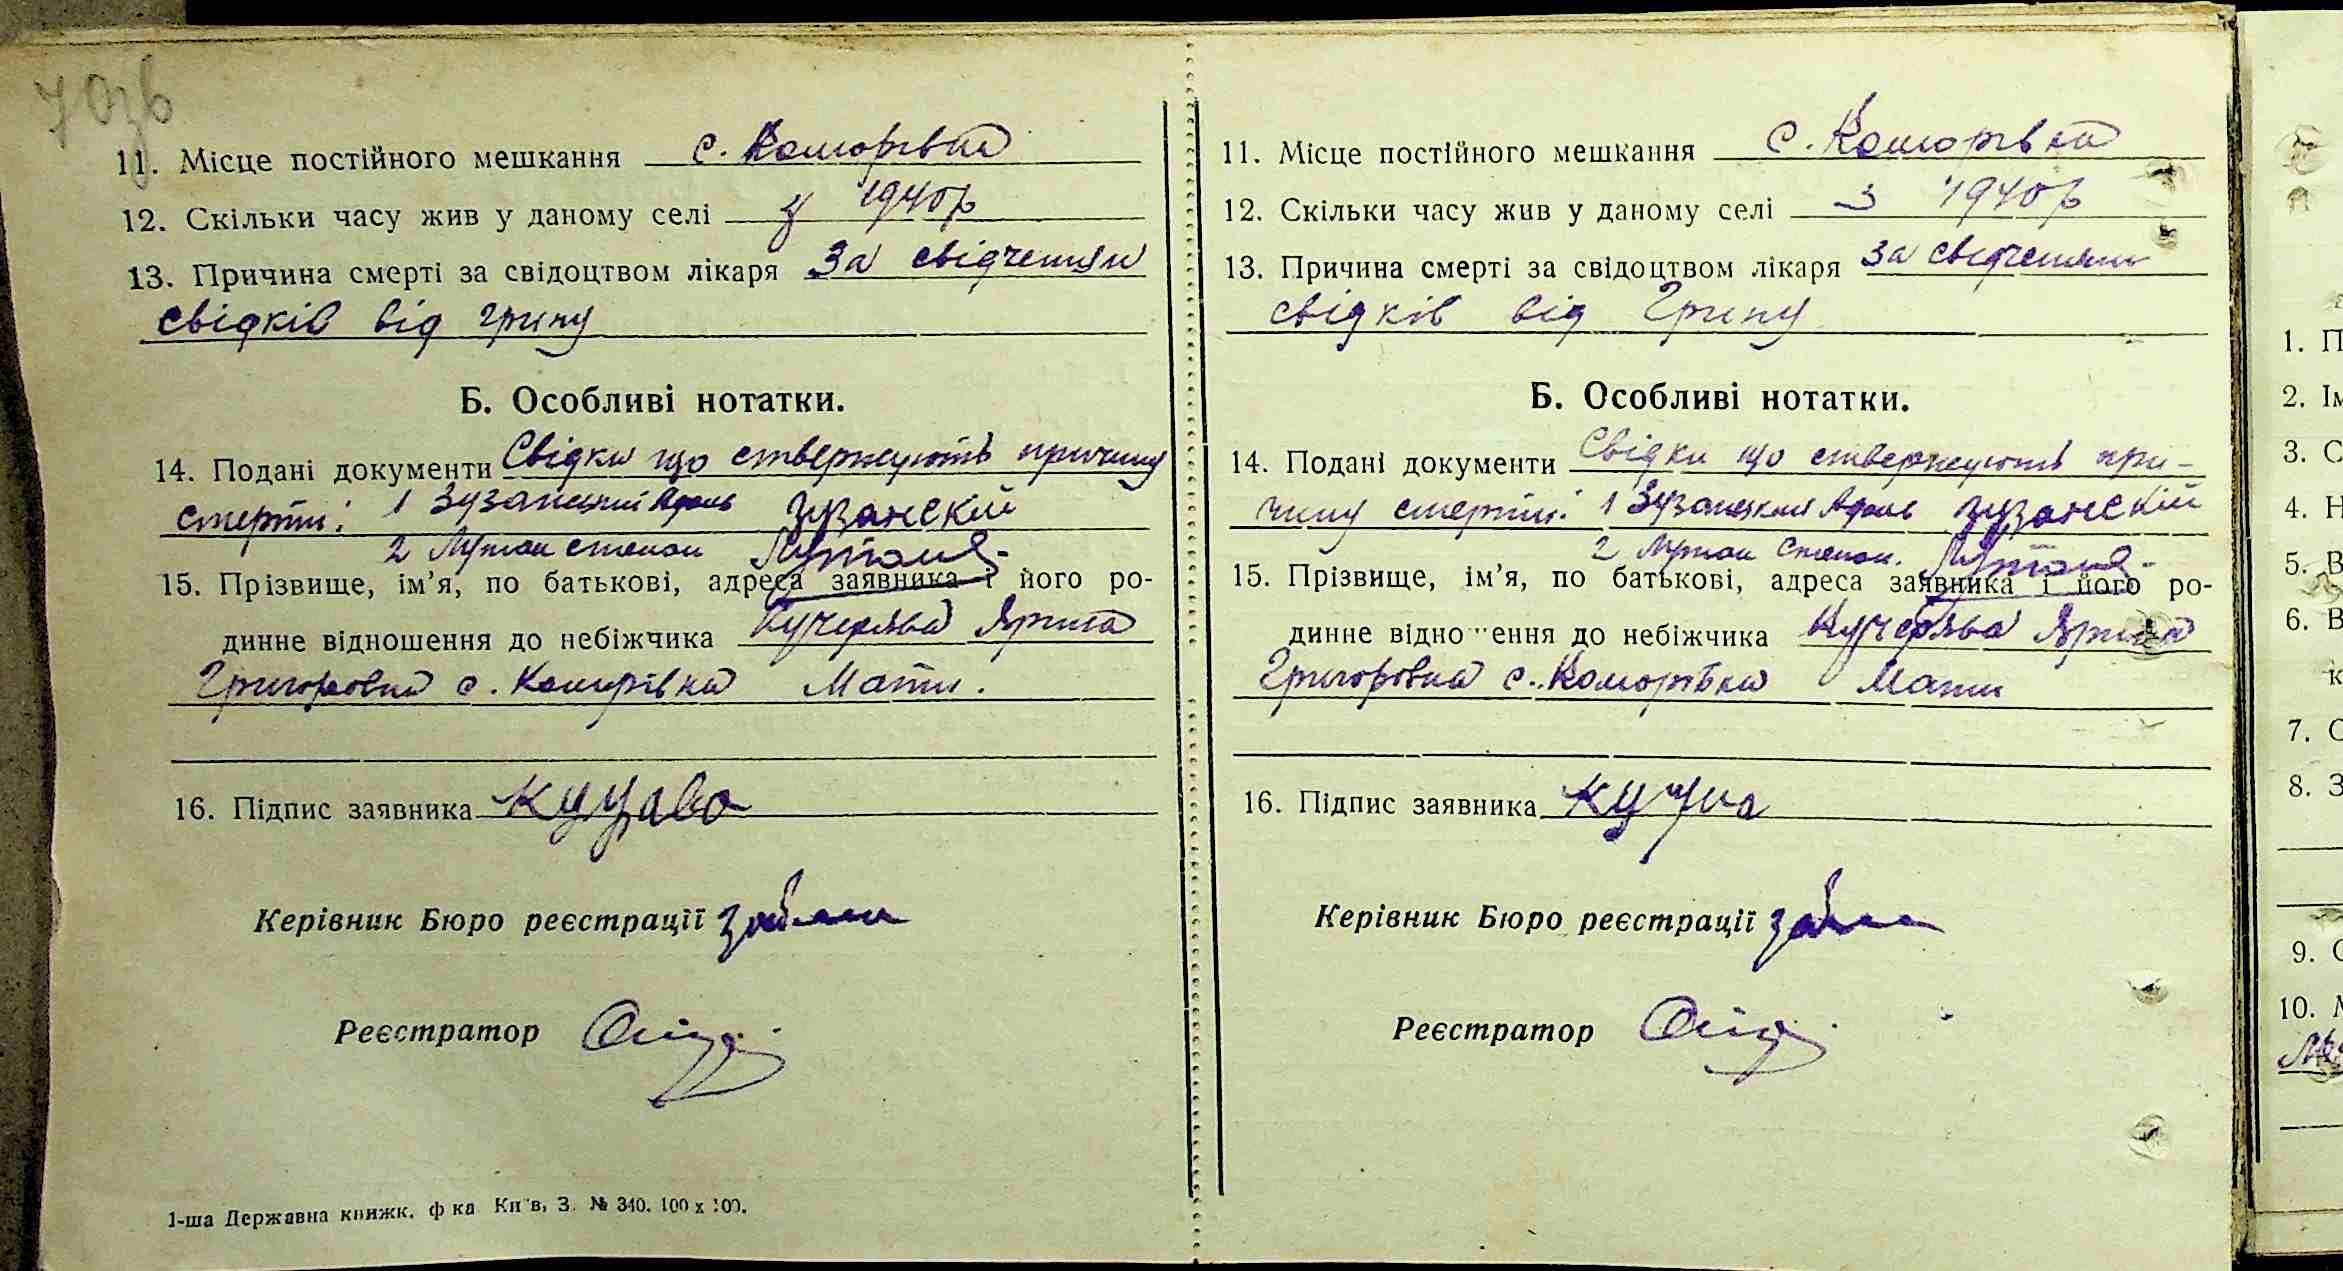 70зв
11. Місце постійного мешкання с. Коморівка
12. Скільки часу жив у даному селі з 1940 р
13. Причина смерті за свідоцтвом лікаря За свідченням
свідків від грипу
Б. Особливі нотатки.
14. Подані документи Свідки що ствержують причину
смерти: 1 Зузанский Адоль зузанскій
2 Лутай степан
15. Прізвище, ім’я, по батькові, адреса заявника і його ро-
динне відношення до небіжчика Кучерява Ярина
Григоровна с. Коморівка Мати.
16. Підпис заявника
Керівник Бюро реєстрації
Реєстратор
1-ша Державна книжк. ф ка Ки в, З. № 340. 100 х 100.
11. Місце постійного мешкання с. Коморівка
12. Скільки часу жив у даному селі з 1940 р
13. Причина смерті за свідоцтвом лікаря За свідченням
свідків від Грипу
Б. Особливі нотатки.
14. Подані документи Свідки що ствержують при-
чину смерти: 1 Зузанский Адоль зузанскій
2 Лутай Степан.
15. Прізвище, ім’я, по батькові, адреса заявника і його ро-
динне відно ення до небіжчика Кучерява Ярина
Григоровна с. Коморівка Мати
16. Підпис заявника
Керівник Бюро реєстрації
Реєстратор
1. П
2. Ім
3. С
4. Н
5. В
6. В
к
7. С
8. З
9. С
10. М